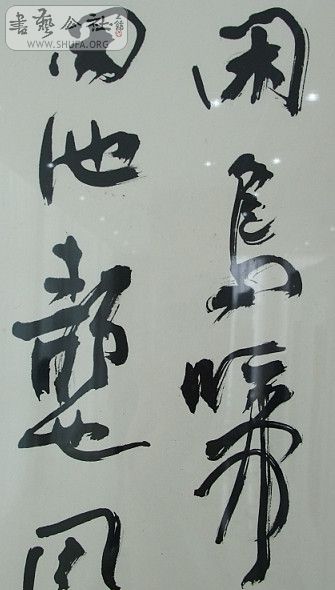 書藝公社
WWW.SHUFA.ORG
闲鸟啼
池馨风